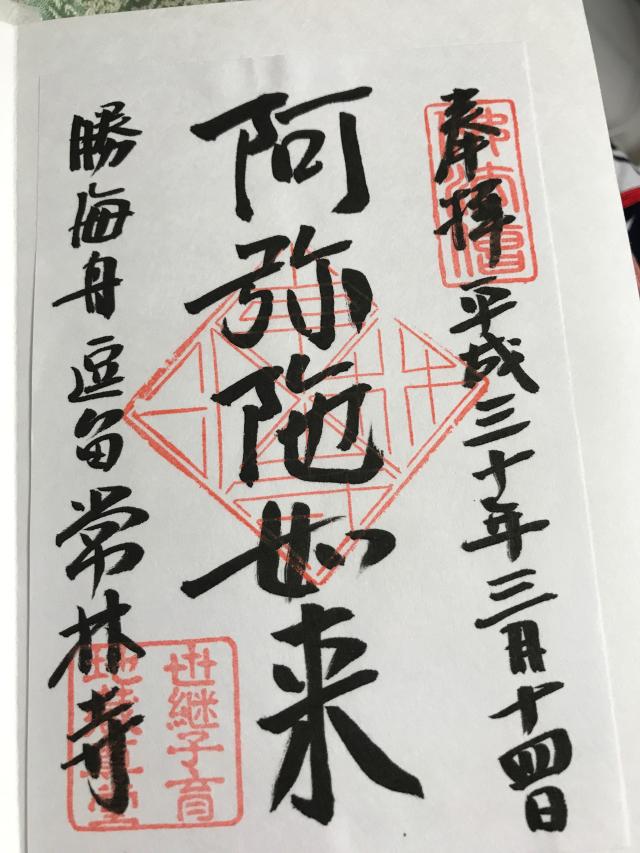 奉拝 平成三十年三月十四日
阿弥陀如来
勝海舟逗留 常林寺
佛法僧
世継子育
地蔵尊堂